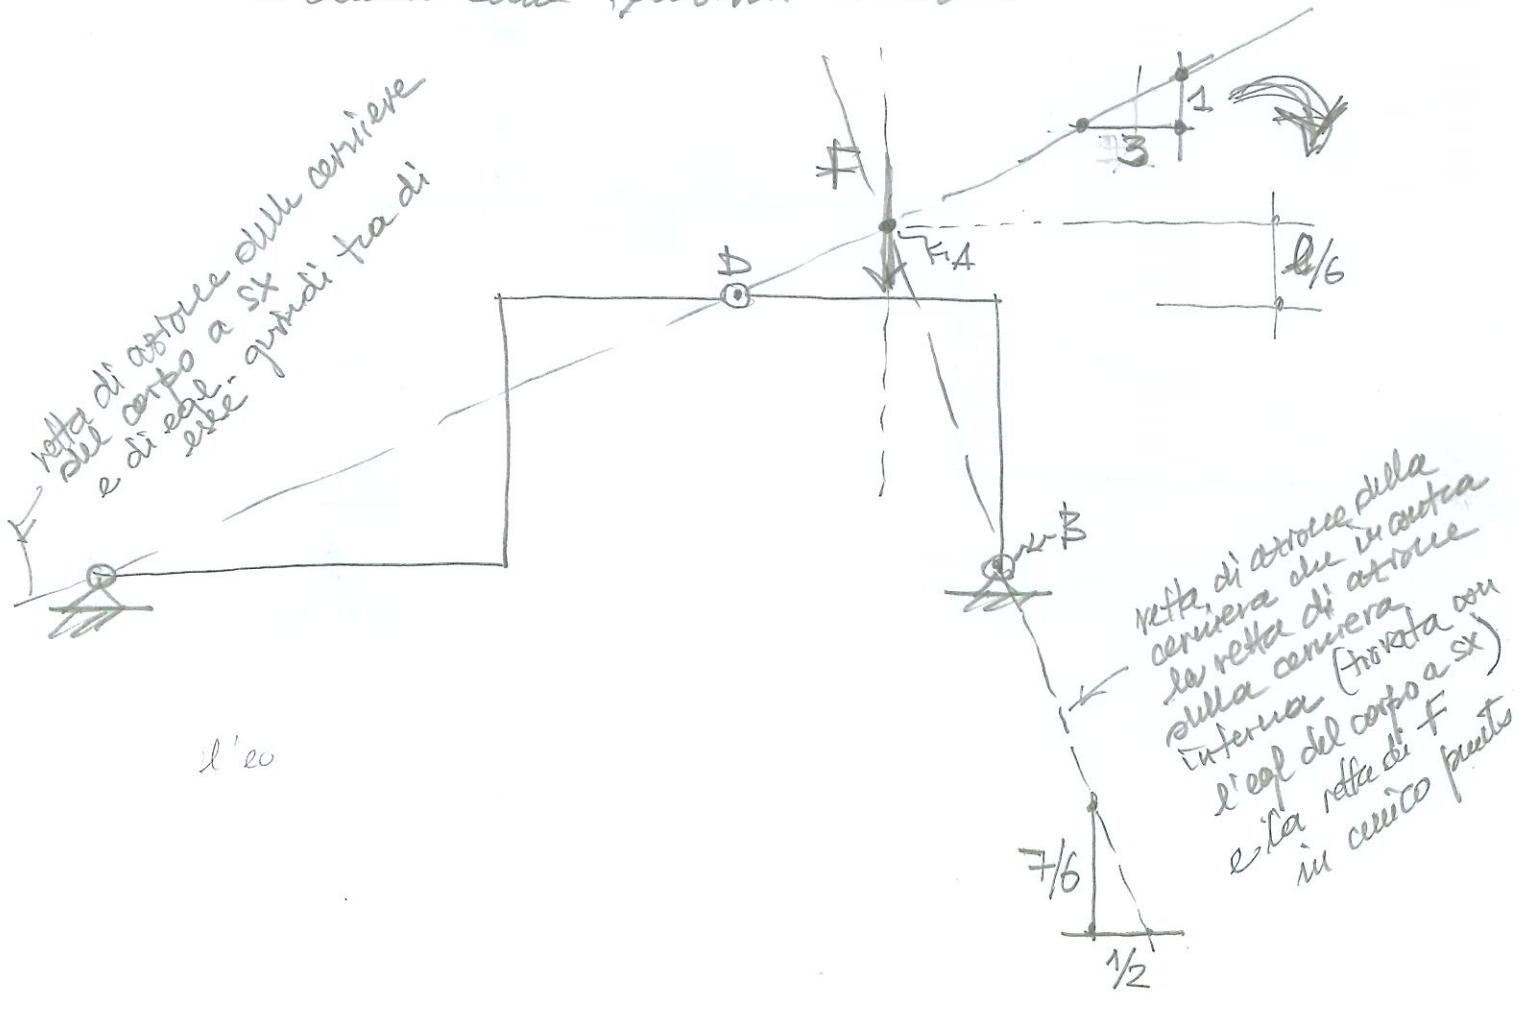 retta di azione delle cerniere
del corpo a sx
e di eql. quindi tra di
esse
F
D
A
1
3
l/6
B
retta di azione della
cerniera che incontra
la retta di azione
della cerniera
interna (trovata con
l'eql del corpo a sx)
e la retta di F
in unico punto
l'eo
7/6
1/2